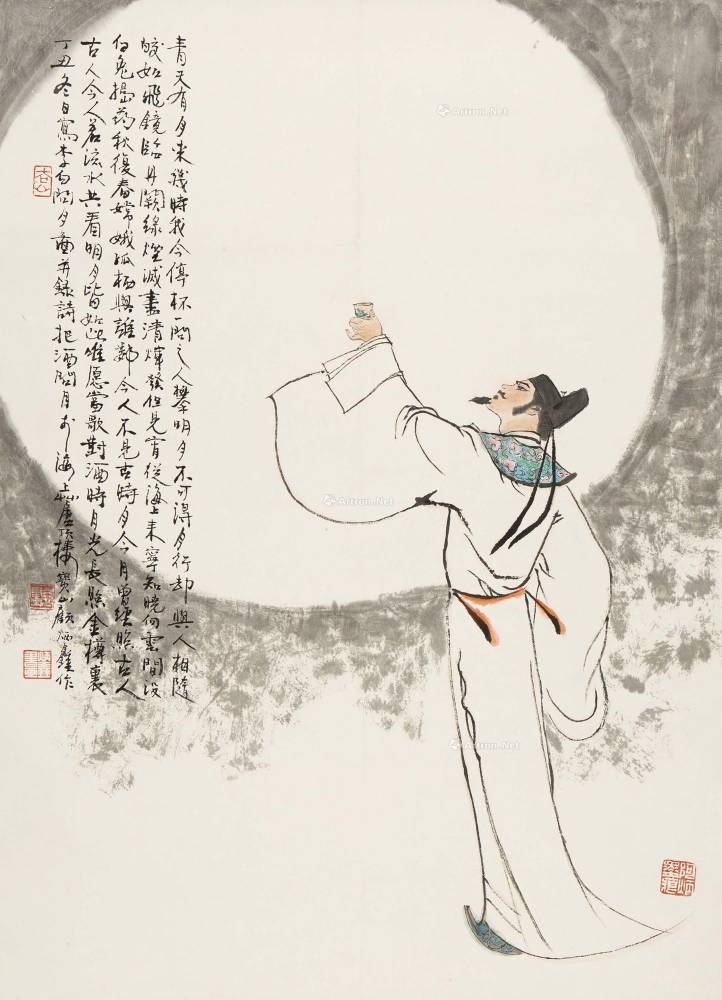 青天有月来幾時我今停杯一問之人攀明月不可得月行却與人相隨
皎如飛鏡臨丹闕綠煙滅盡清輝發但見宵從海上来寧知曉向雲間沒
白兔搗药秋復春嫦娥孤栖與誰鄰今人不見古時月今月曾經照古人
古人今人若流水共看明月皆如此唯愿當歌對酒時月光長照金樽裏
丁丑冬日寫李白問月圖并錄詩把酒問月於海上樓寶山顧炳鑫作
Artron.Net
Artron.Net
Artron.Net